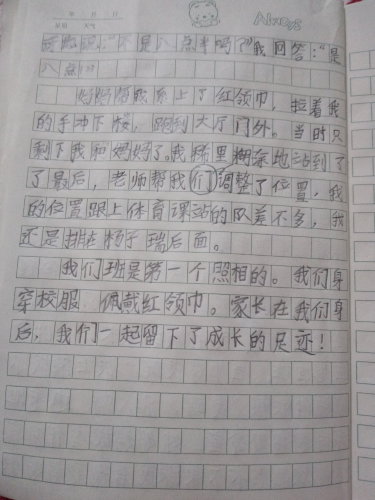 年 月 日
星期 天气
Always
妈妈说："不是八点半吗？"我回答："是
八点。"
妈妈帮我系上了红领巾，拉着我
的手冲下楼，跑到大厅门外。当时只
剩下我和妈妈了。我稀里糊涂地站到了
了最后，老师帮我们调整了位置，我
的位置跟上体育课站的队差不多，我
还是排在杨子瑞后面。
我们班是第一个照相的。我们身
穿校服 佩戴红领巾。家长在我们身
后，我们一起留下了成长的足迹！